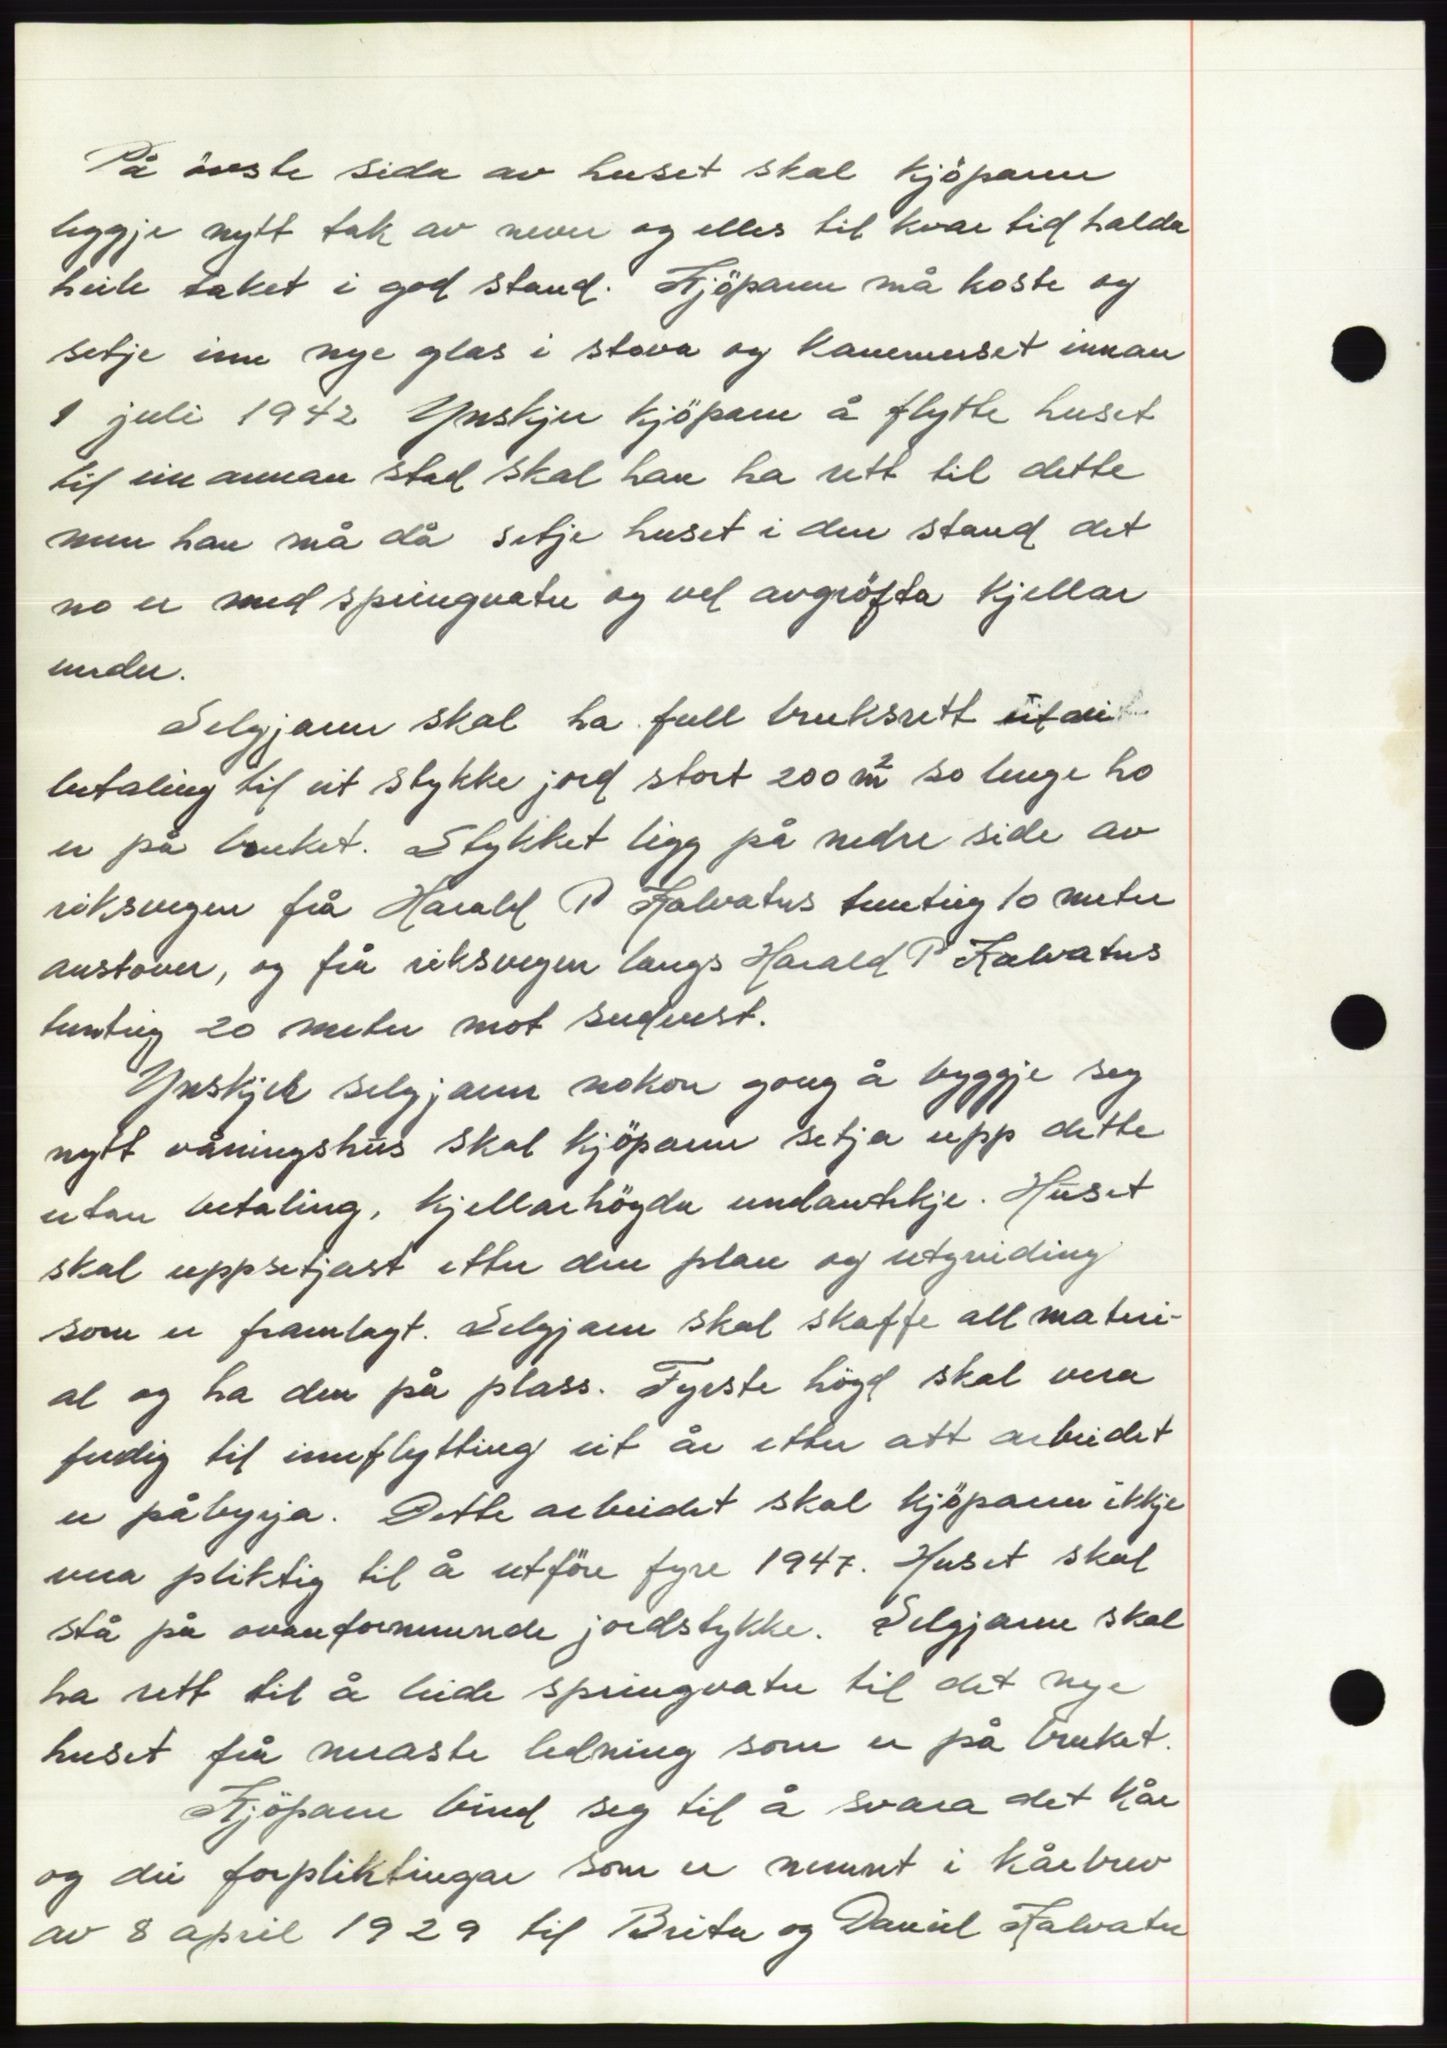 På övste sida av huset skal kjöparen
leggje nytt tak av never og elles til kvar tid halda
heile taket i god stand. Kjöparen må koste og
setje inn nye glas i stova og kammerset innan
1 juli 1942 Ynskjer kjöparen å flytte huset
til ein annan stad skal han ha rett til dette
men han må då setje huset i den stand det
no er med springvatn og vel avgröfta kjellar
under.
Seljaren skal ha full bruksrett utan
betaling til eit stykke jord stort 200 m² so lenge ho
er på bruket. Stykket ligg på nedre side av
riksvegen frå Harald P Kalvatns tunting 10 meter
austover, og frå riksvegen langs Harald P Kalvatns
tunting 20 meter mot sudvest.
Ynskjer selgjaren nokon gong å byggje seg
nytt våningshus skal kjöparen setja upp dette
utan betaling, kjellarhögda undanteke. Huset
skal uppsetjast etter den plan og utgreiding
som er framlagt. Selgjaren skal skaffe all materi-
al og ha den på plass. Fyrste högd skal vera
ferdig til innflytting eit år etter att arbeidet
er påbyrja. Dette arbeidet skal kjöparen ikkje
vera pliktig til å utföre fyre 1947. Huset skal
stå på ovanfornemnde jordstykke. Selgjaren skal
ha rett til å leide springvatn til det nye
huset frå næraste ledning som er på bruket.
Kjöparen bind seg til å svara det kår
og dei forpliktingar som er nemnt i kårbrev
av 8 april 1929 til Brite og Daniel Kalvatn